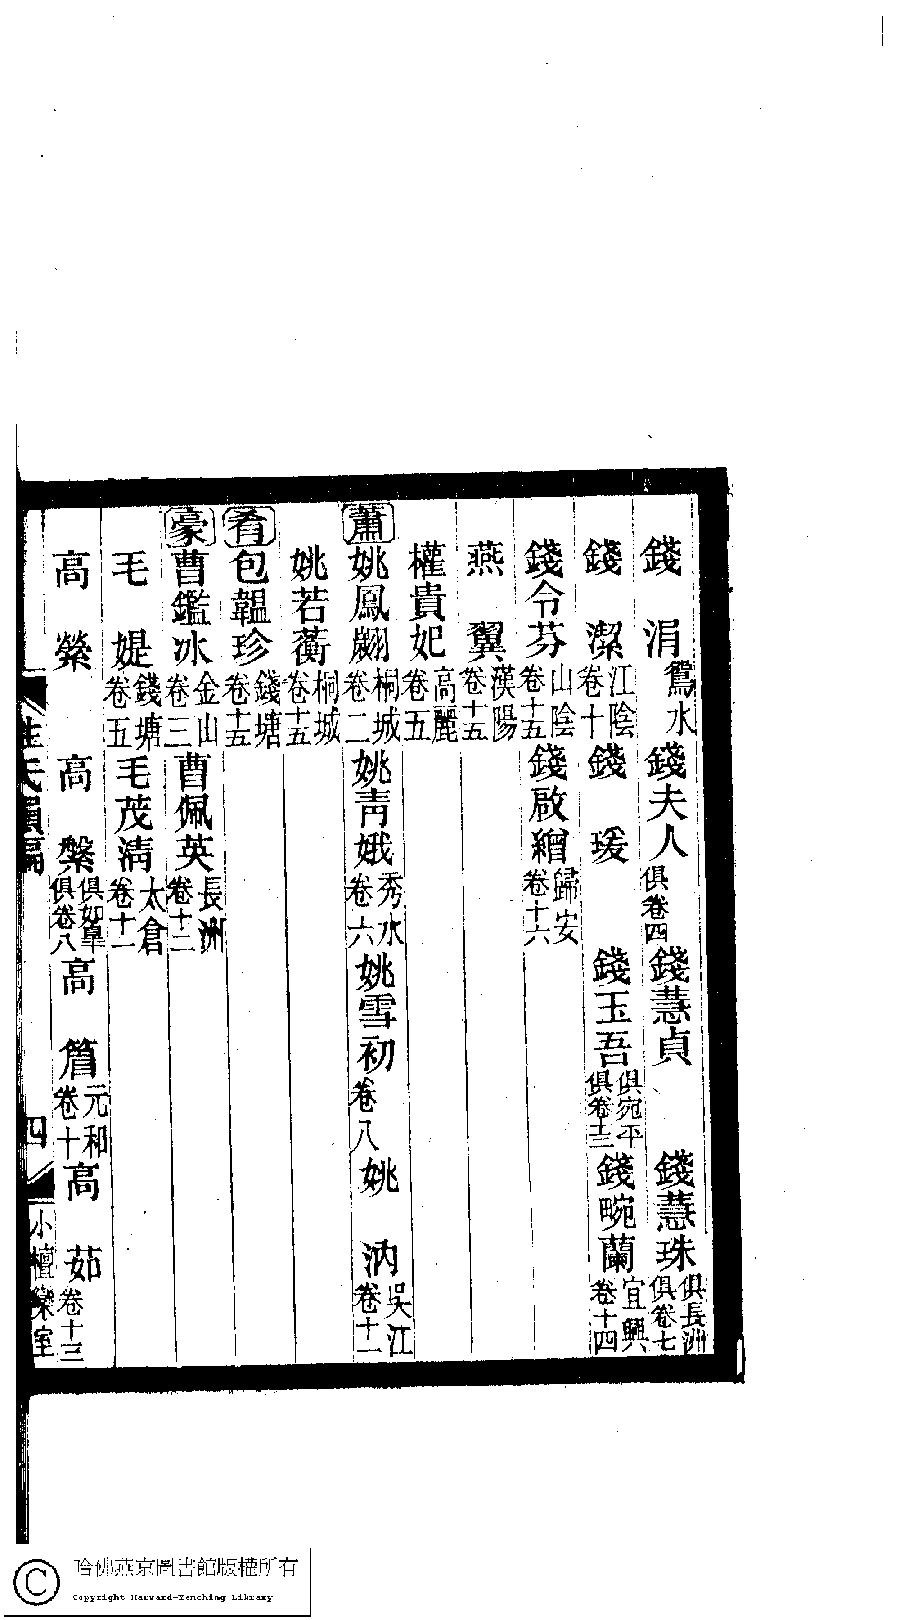 錢涓鴛水錢夫人俱卷四錢慧貞錢慧珠俱長洲俱卷七
錢潔江陰卷十錢瑗錢玉吾俱宛平俱卷十二錢畹蘭宜興卷十四
錢令芬山陰卷十五錢啟繒歸安卷十六
燕翼漢陽卷十五
權貴妃高麗卷五
蕭姚鳳翽桐城卷二姚青娥秀水卷六姚雪初卷八姚汭吳江卷十一
姚若蘅桐城卷十五
肴包韞珍錢塘卷十五
豪曹鑑冰金山卷三曹佩英長洲卷十二
毛媞錢塘卷五毛茂清太倉卷十一
高縈高槃俱如臯俱卷八高篃元和卷十高茹卷十三
姓氏韻編 四 小檀欒室
哈佛燕京圖書館版權所有
Copyright Harvard-Yenching Library